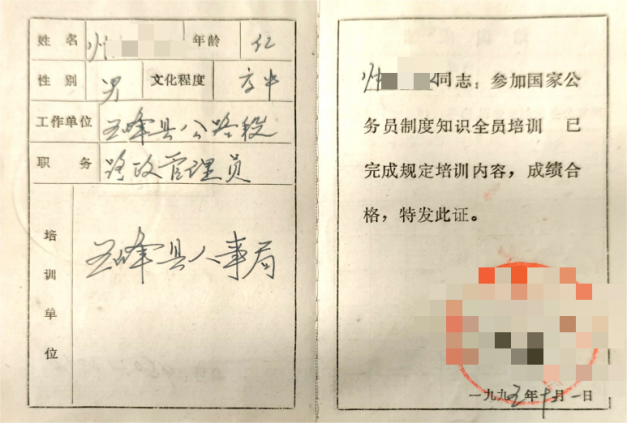 姓名 帅 年龄
性别 男 文化程度 高中
工作单位 五峰县公路段
职务 路政管理员
培训单位 五峰县人事局
帅 同志，参加国家公
务员制度知识全员培训 已
完成规定培训内容，成绩合
格，特发此证。
一九九五年十二月一日